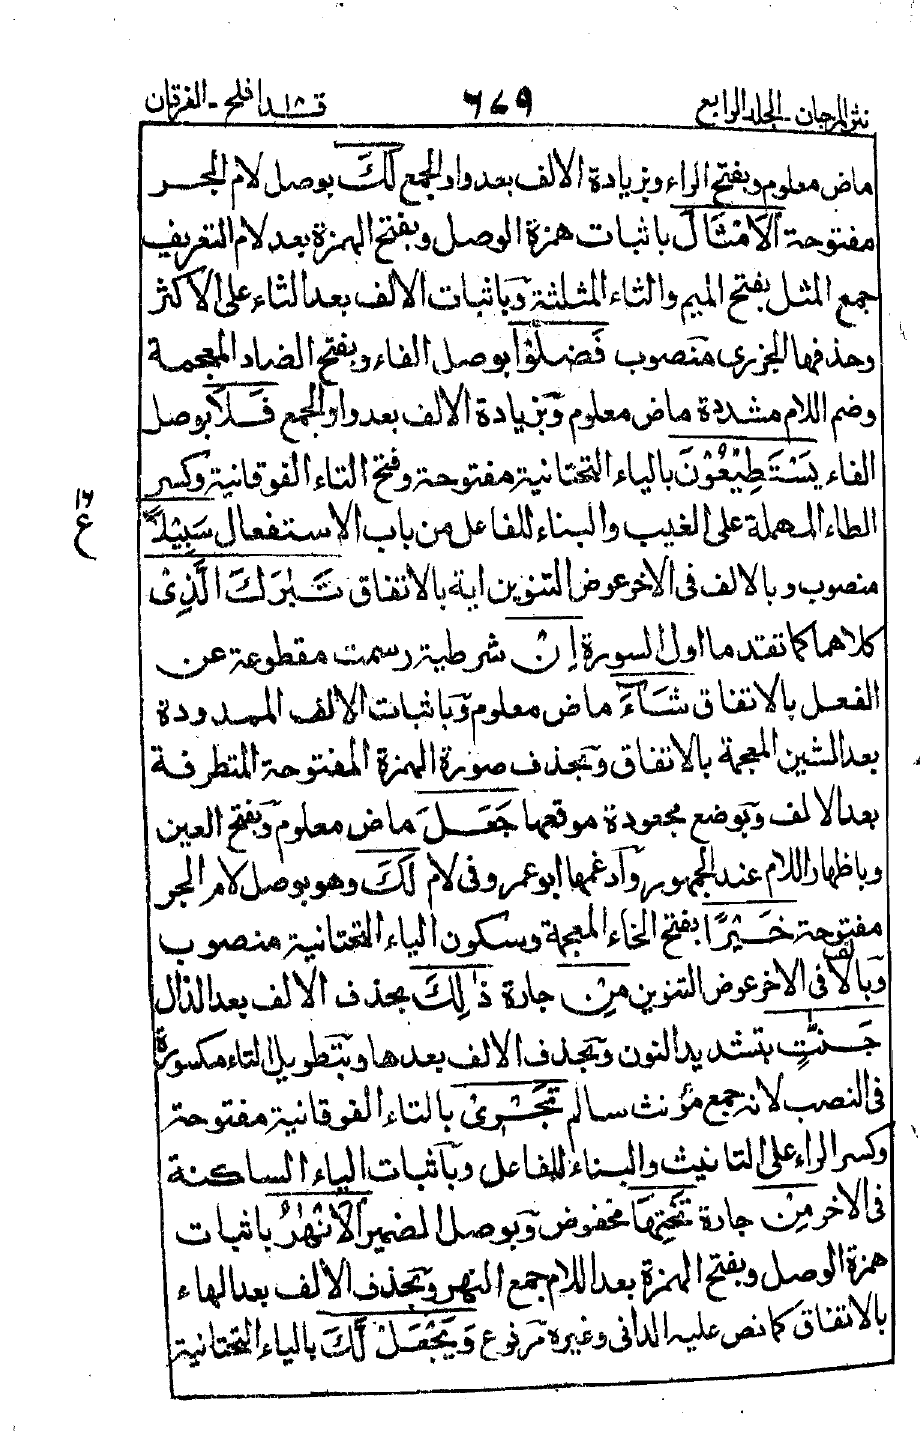 نثر المرجان - الجلد الرابع ٦٧٩ قد افلح ١٨ - الفرقان
ماض معلوم وبفتح الراء وبزيادة الالف بعد واو الجمع لَكَ بوصل لام الجر
مفتوحة الْاَمْثَالَ باثبات همزة الوصل وبفتح الهمزة بعد لام التعريف
جمع المثل بفتح الميم والثاء المثلثة وباثبات الالف بعد الثاء على الاكثر
وحذفها الجزرى منصوب فَضَلُّوْا بوصل الفاء وبفتح الضاد المعجمة
وضم اللام مشددة ماض معلوم وبزيادة الالف بعد واو الجمع فَلَا بوصل
الفاء يَسْتَطِيْعُوْنَ بالياء التحتانية مفتوحة وفتح التاء الفوقانية وكسر
الطاء المهملة على الغيب والبناء للفاعل من باب الاستفعال سَبِيْلًا
١٦
ع
منصوب وبالالف فى الاخر عوض التنوين اية بالاتفاق تَبٰرَكَ الَّذِىْ
كلاهما كما تقدما اول السورة اِنْ شرطية رسمت مقطوعة عن
الفعل بالاتفاق شَآءَ ماض معلوم وباثبات الالف الممدودة
بعد الشين المعجمة بالاتفاق وبحذف صورة الهمزة المفتوحة المتطرفة
بعد الالف وبوضع مجعودة موقعها جَعَلَ ماض معلوم وبفتح العين
وباظهار اللام عند الجمهور وادغمها ابو عمرو فى لام لَكَ وهو بوصل لام الجر
مفتوحة خَيْرًا بفتح الخاء المعجمة وسكون الياء التحتانية منصوب
وبالالف فى الاخر عوض التنوين مِنْ جارة ذٰلِكَ بحذف الالف بعد الذال
جَنّٰتٍ بتشديد النون وبحذف الالف بعدها وبتطويل التاء مكسورة
فى النصب لانه جمع مؤنث سالم تَجْرِىْ بالتاء الفوقانية مفتوحة
وكسر الراء على التانيث والبناء للفاعل وباثبات الياء الساكنة
فى الاخر مِنْ جارة تَحْتِهَا مخفوض وبوصل الضمير الْاَنْهٰرُ باثبات
همزة الوصل وبفتح الهمزة بعد اللام جمع النهر وبحذف الالف بعد الهاء
بالاتفاق كما نص عليه الدانى وغيره مرفوع وَيَجْعَلْ لَّكَ بالياء التحتانية